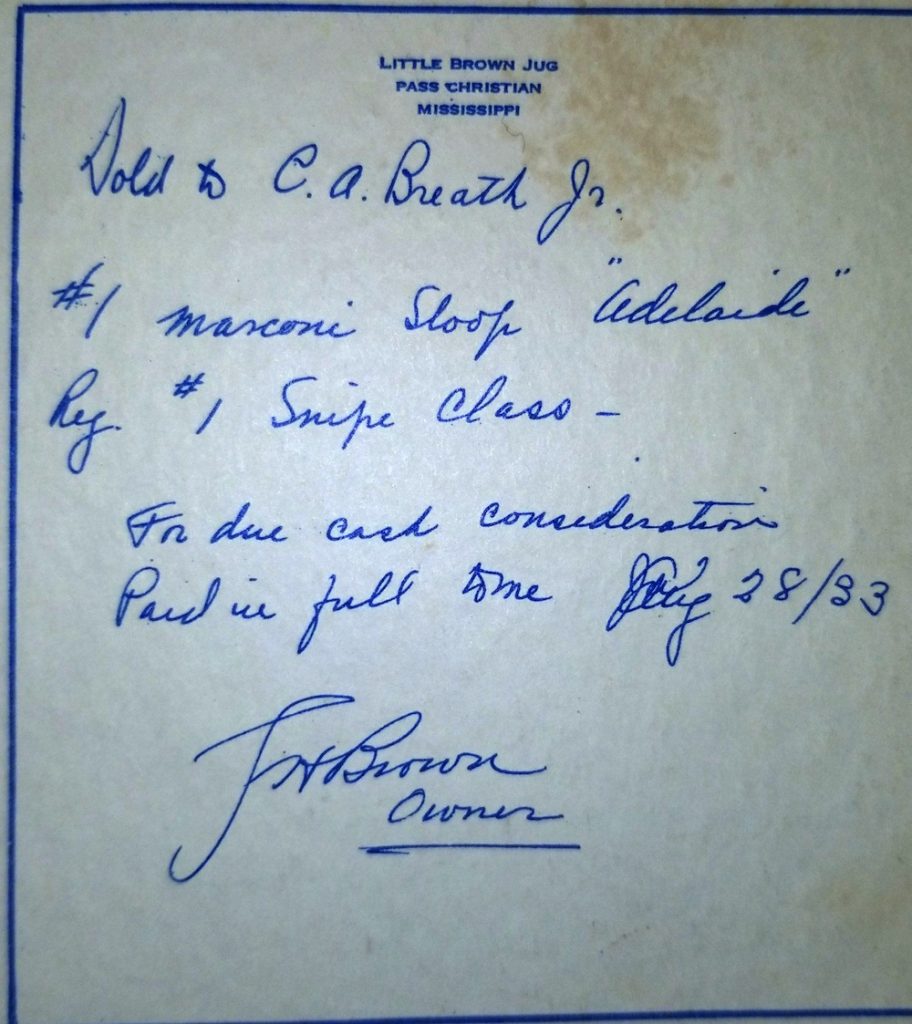 LITTLE BROWN JUG
PASS CHRISTIAN
MISSISSIPPI
Sold to C. A. Breath Jr.
#1 Marconi Sloop "Adelaide"
Reg. #1 Snipe Class –
For due cash consideration
Paid in full to me Aug 28/33
J H Brown
Owner